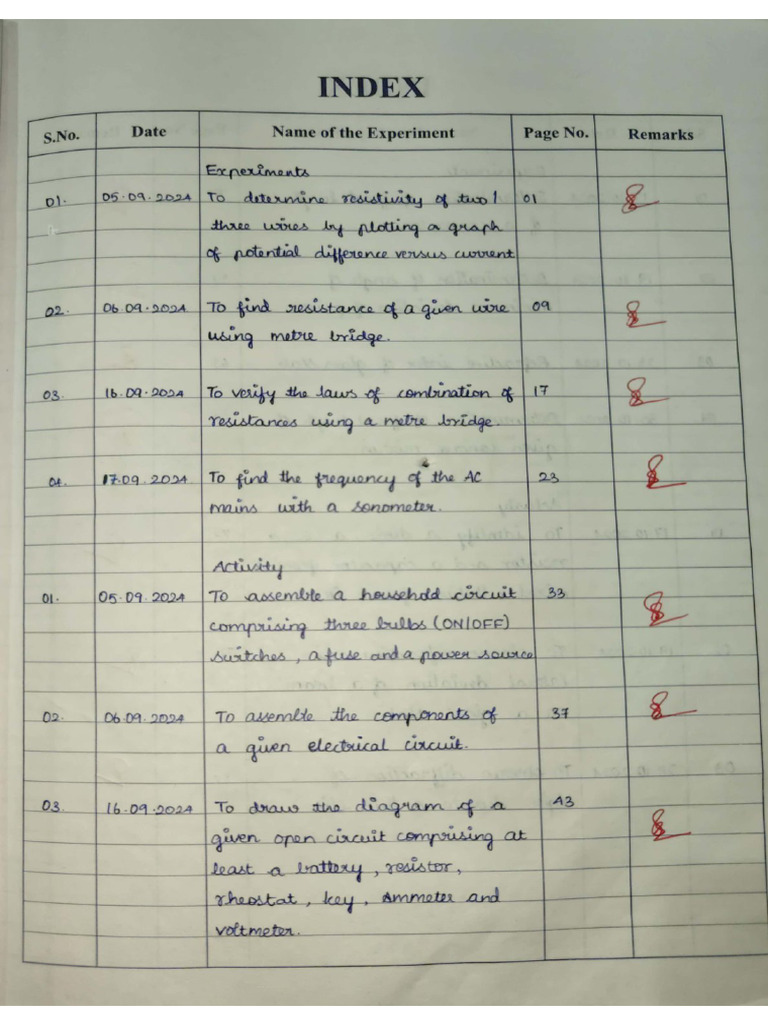 INDEX
S.No. Date Name of the Experiment Page No. Remarks
Experiments
01. 05.09.2024 To determine resistivity of two/ 01
three wires by plotting a graph
of potential difference versus current
02. 06.09.2024 To find resistance of a given wire 09
using metre bridge.
03. 16.09.2024 To verify the laws of combination of 17
resistances using a metre bridge.
04. 17.09.2024 To find the frequency of the AC 23
mains with a sonometer.
Activity
01. 05.09.2024 To assemble a household circuit 33
comprising three bulbs (ON/OFF)
switches, a fuse and a power source
02. 06.09.2024 To assemble the components of 37
a given electrical circuit.
03. 16.09.2024 To draw the diagram of a 43
given open circuit comprising at
least a battery, resistor,
rheostat, key, ammeter and
voltmeter.